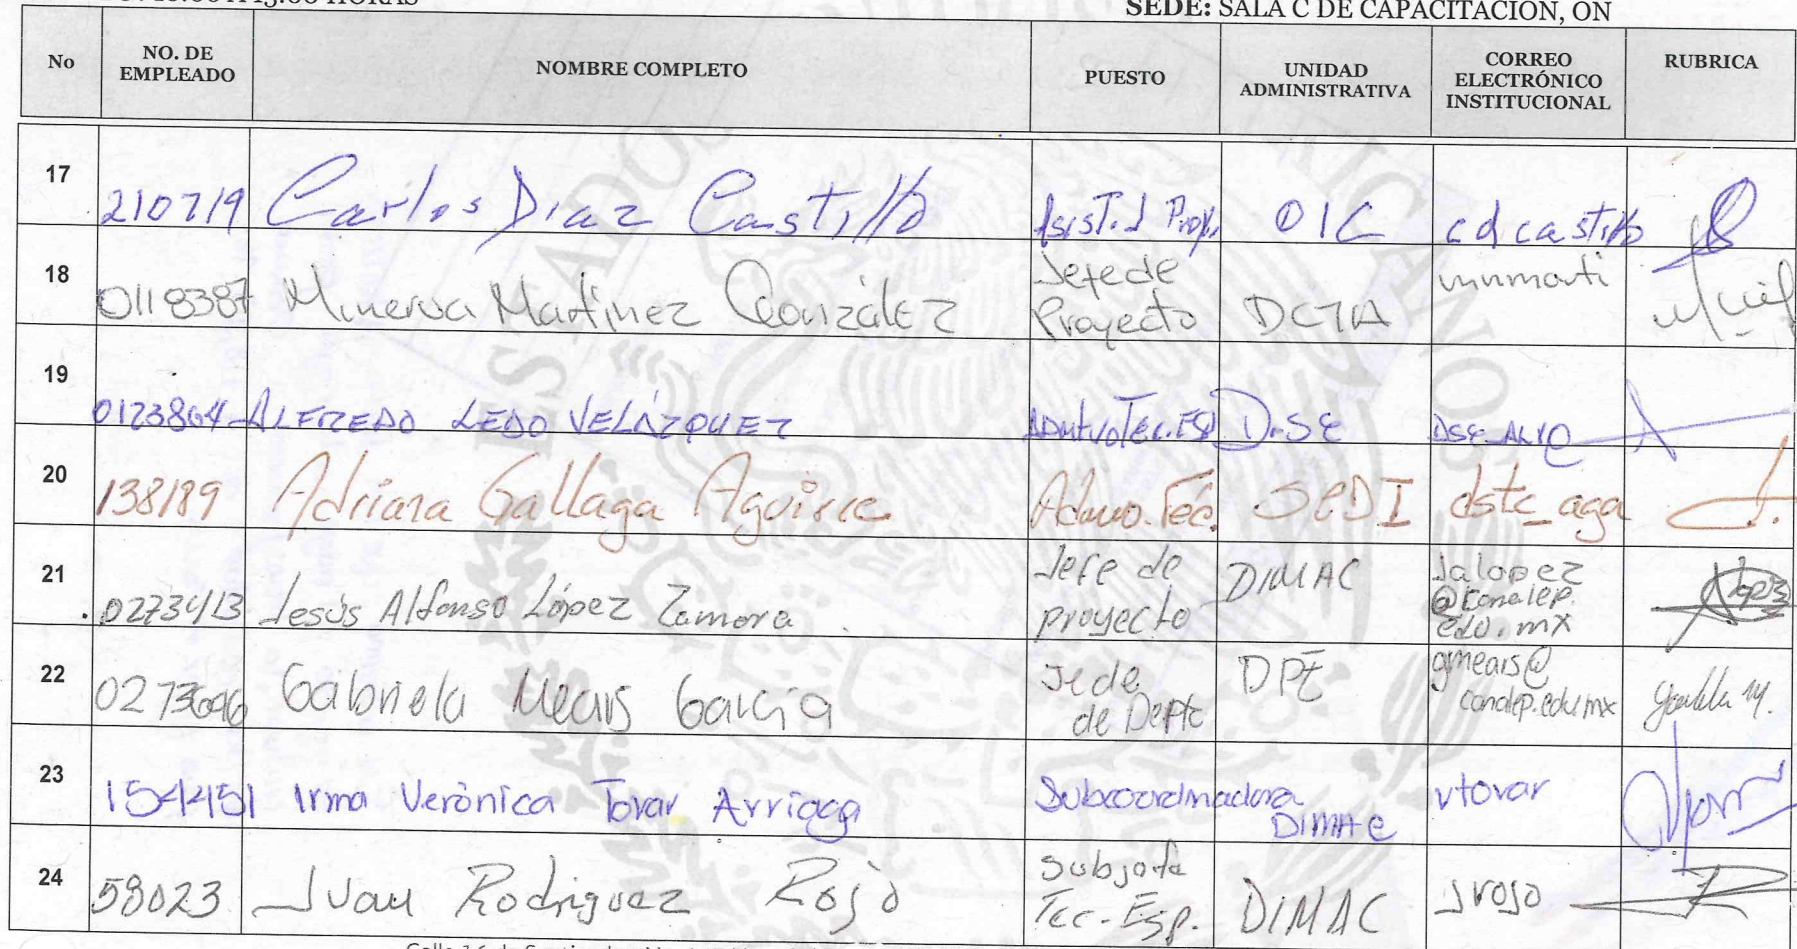 10:00 A 15:00 HORAS
SEDE: SALA C DE CAPACITACION, ON
No NO. DE EMPLEADO NOMBRE COMPLETO PUESTO UNIDAD ADMINISTRATIVA CORREO ELECTRÓNICO INSTITUCIONAL RUBRICA
17 210719 Carlos Diaz Castillo Asist.d Proy. OIC cdcastillo
18 0118387 Minerva Martinez González Jefe de Proyecto DCTA mnmarti
19 0123864 ALFREDO LEDO VELÁZQUEZ ADMtvoTéc.ESP D.SE
20 138189 Adriana Gallaga Aguirre Admvo.Téc. SEDI dstc_aga
21 0273413 Jesús Alfonso López Zamora Jefe de proyecto DIMAC Jalopez@conalep.edu.mx
22 0273696 Gabriela Mears García Jede de Depto DPE gmears@conalep.edu.mx
23 154451 Irma Verónica Tovar Arriaga Subcoordinadora DIMAC vtovar
24 58023 Juan Rodriguez Rojo Subjefe Tec-Esp. DIMAC jrojo